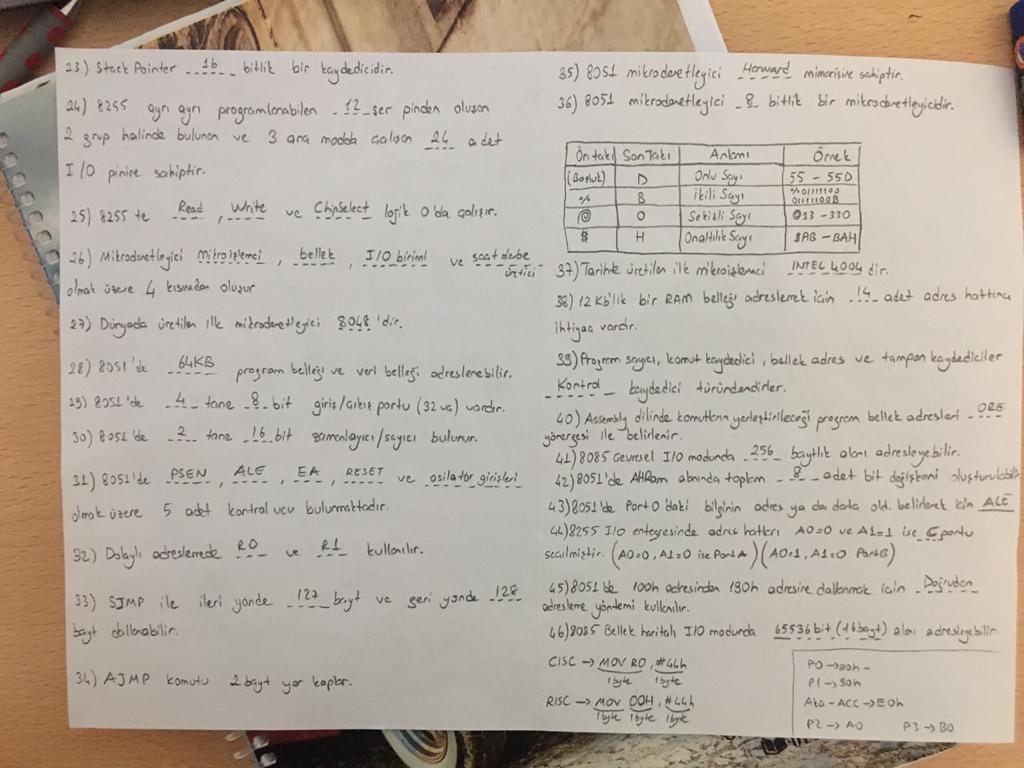 23) Stack Pointer 16 bitlik bir kaydedicidir.
24) 8255 ayrı ayrı programlanabilen 12 şer pinden oluşan
2 grup halinde bulunan ve 3 ana modda çalışan 24 adet
I/O pinine sahiptir.
25) 8255 te Read, Write ve ChipSelect lojik 0'da çalışır.
26) Mikrodenetleyici mikroişlemci, bellek, I/O birimi ve saat darbe üretici
olmak üzere 4 kısımdan oluşur
27) Dünyada üretilen ilk mikrodenetleyici 8048'dir.
28) 8051'de 64KB program belleği ve veri belleği adreslenebilir.
29) 8051'de 4 tane 8 bit giriş/çıkış portu (32 uç) vardır.
30) 8051'de 2 tane 16 bit zamanlayıcı/sayıcı bulunur.
31) 8051'de PSEN, ALE, EA, RESET ve osilatör girişleri
olmak üzere 5 adet kontrol ucu bulunmaktadır.
32) Dolaylı adreslemede R0 ve R1 kullanılır.
33) SJMP ile ileri yönde 127 bayt ve geri yönde 128
bayt dallanabilir.
34) AJMP komutu 2 bayt yer kaplar.
35) 8051 mikrodenetleyici Harward mimarisine sahiptir.
36) 8051 mikrodenetleyici 8 bitlik bir mikrodenetleyicidir.
Ön takı Son Takı Anlamı Örnek
(Boşluk) D Onlu Sayı 55 - 55D
% B İkili Sayı %01111100 01111100B
@ O Sekizli Sayı @13 - 33O
$ H Onaltılık Sayı $AB - BAH
37) Tarihte üretilen ilk mikroişlemci INTEL 4004 dir.
38) 12 Kb'lik bir RAM belleği adreslemek için 14 adet adres hattına
ihtiyaç vardır.
39) Program sayıcı, komut kaydedici, bellek adres ve tampon kaydediciler
Kontrol kaydedici türündendirler.
40) Assembly dilinde komutların yerleştirileceği program bellek adresleri ORG
yönergesi ile belirlenir.
41) 8085 Çevresel I/O modunda 256 baytlık alanı adresleyebilir.
42) 8051'de alanında toplam 8 adet bit değişkeni oluşturulabilir
43) 8051'de Port 0'daki bilginin adres ya da data old. belirlemek için ALE
44) 8255 I/O entegresinde adres hatları A0=0 ve A1=1 ise C portu
seçilmiştir. (A0=0, A1=0 ise Port A) (A0=1, A1=0 Port B)
45) 8051'de 100h adresinden 190h adresine dallanmak için Doğrudan
adresleme yöntemi kullanılır.
46) 8085 Bellek haritalı I/O modunda 65536 bit (16 bayt) alanı adresleyebilir
CISC → MOV R0, #44h
1byte 1byte
RISC → MOV 00H, #44h
1byte 1byte 1byte
P0 → 80h -
P1 → 90h
Akü - ACC → E0h
P2 → A0 P3 → B0